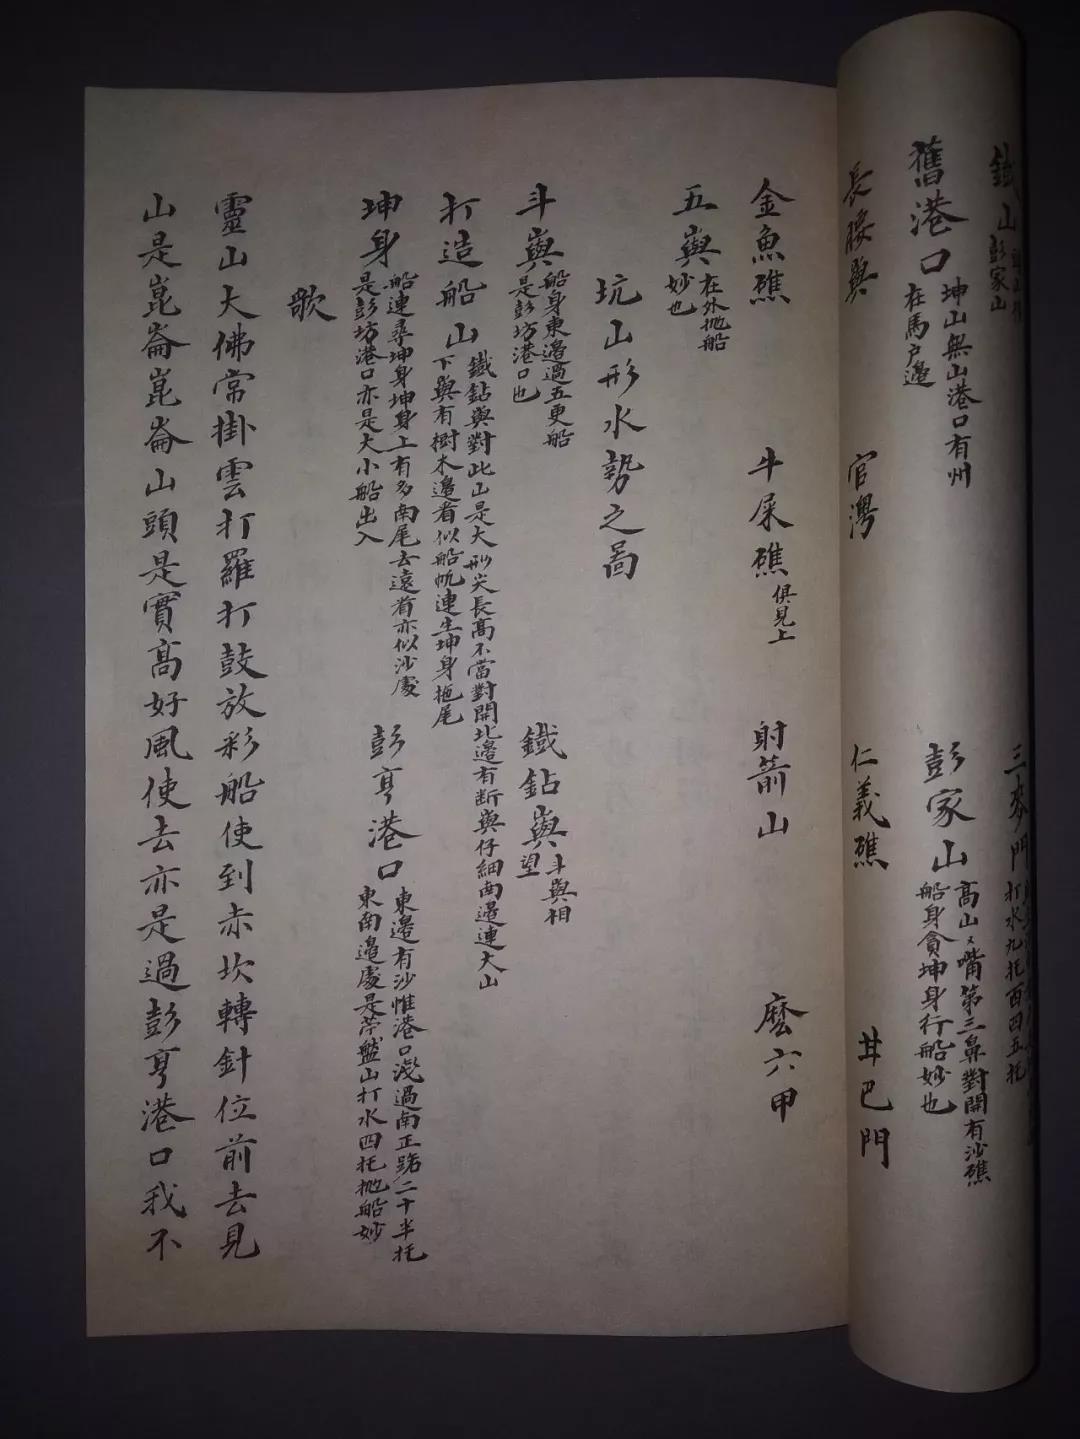 鐵山 彭家山
三麥門 打水九托西四五托
舊港口 坤山無山港口有州
在馬戶邊
彭家山 高山々嘴第三鼻對開有沙礁
船身貪坤身行船妙也
長腰與 官灣 仁義礁 甘巴門
金魚礁 牛屎礁 俱見上 射箭山 麼六甲
五與 在外拋船
妙也
坑山形水勢之啚
斗與 船身東邊過五更船
是彭坊港口也
鐵鈷與 斗與相
望
打造船山 鐵鈷與對此山是大形尖長高不當對開北邊有斷與仔細西邊連大山
下與有樹木邊看似船帆連生坤身拖尾
坤身 船連尋坤身坤身上有多南尾去遠看亦似沙處
是彭坊港口亦是大小船出入
彭亨港口 東邊有沙惟港口淺過南正路二十半托
東南邊處是苧盤山打水四托拋船妙
歌
靈山大佛常掛雲打羅打鼓放彩船使到赤坎轉針位前去見
山是崑崙崑崙山頭是實高好風使去亦是過彭亨港口我不